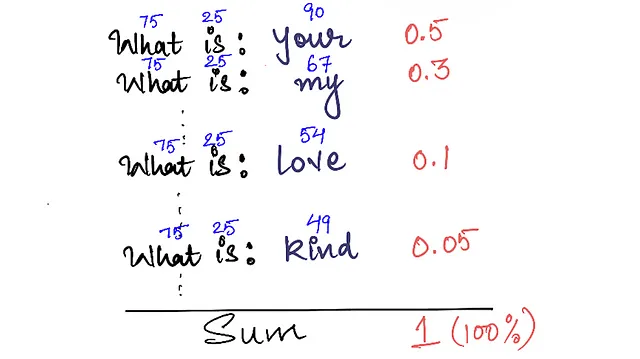 75 25 90
What is: your 0.5
75 25 67
What is: my 0.3
75 25 54
What is: love 0.1
75 25 49
What is: kind 0.05
Sum 1 (100%)